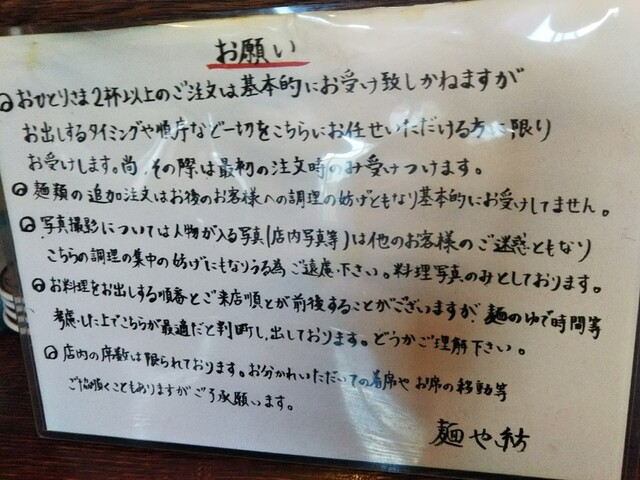 お願い
おひとりさま2杯以上のご注文は基本的にお受け致しかねますが
お出しするタイミングや順序など一切をこちらにお任せいただける方に限り
お受けします。尚、その際は最初の注文時のみ受けつけます。
麺類の追加注文はお後のお客様への調理の妨げともなり基本的にお受けしてません。
写真撮影については人物が入る写真(店内写真等)は他のお客様のご迷惑ともなり
こちらの調理の集中の妨げにもなりうる為ご遠慮下さい。料理写真のみとしております。
お料理をお出しする順番とご来店順とが前後することがございますが、麺のゆで時間等
考慮した上でこちらが最適だと判断し出しております。どうかご理解下さい。
店内の席数は限られております。お分かれいただいての着席やお席の移動等
ご協頂くこともありますがご了承願います。
麺や紡